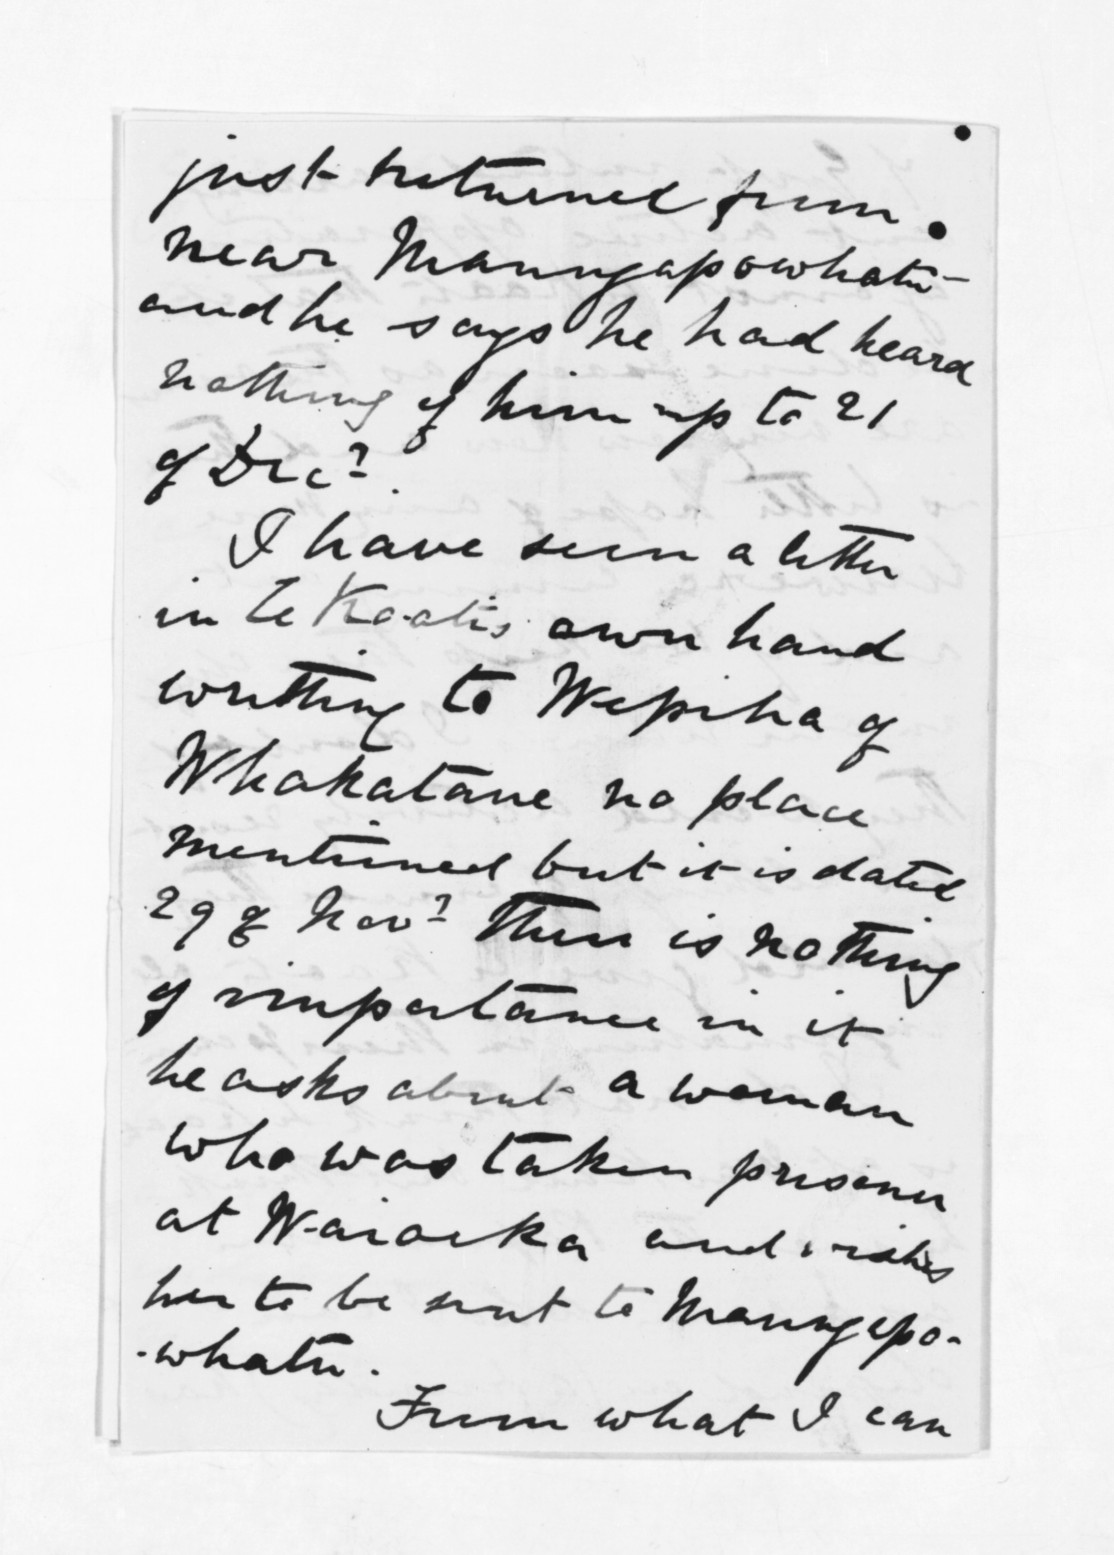 just returned from
near Maungapowhatu
and he says he had heard
nothing of him up to 21
of Decr.
I have seen a letter
in Te Kooti's own hand
writting to Wepiha of
Whakatane no place
mentioned but it is dated
29 of Novr There is nothing
of importance in it
he asks about a woman
who was taken prisoner
at Waioeka and wishes
her to be sent to Maungapo-
-whatu.
From what I can